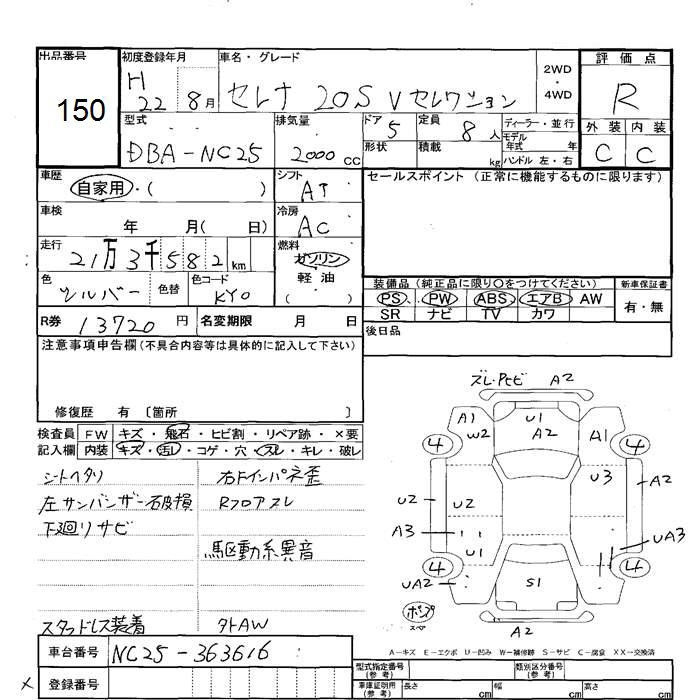 出品番号 初度登録年月 車名・グレード 評価点
150 H 22 8月 セレナ 20S Vセレクション 2WD・4WD R
型式 排気量 ドア 5 定員 8人 ディーラー・並行 外装 内装
DBA-NC25 2000cc 形状 積載 kg モデル年式 年 ハンドル 左・右 C C
車歴 自家用・( ) シフト AT セールスポイント (正常に機能するものに限ります)
車検 年 月( 日) 冷房 AC
走行 21万3千582km 燃料 ガソリン 軽油 ( )
色 シルバー 色替 色コード KY0
装備品 (純正品に限り○をつけてください) 新車保証書
PS PW ABS エアB AW 有・無
SR ナビ TV カワ
R券 13720円 名変期限 月 日 後日品
注意事項申告欄(不具合内容等は具体的に記入して下さい)
修復歴 有 〔箇所 〕
検査員 FW キズ・飛石・ヒビ割・リペア跡・×要
記入欄 内装 キズ・汚レ・コゲ・穴・スレ・キレ・破レ
シートヘタリ 右Fインパネ歪
左サンバイザー破損 Rフロアスレ
下廻リサビ
駆動系異音
スタッドレス装着 外AW
ズレ・Pヒビ A2
A1 U1 W2 A2 A1
4 4
U3 A2
U2 U2
A3 U1 UA3
4 4
UA2 S1
ポンプ スペア
A2
A-キズ E-エクボ U-凹み W-補修跡 S-サビ C-腐食 XX-交換済
車台番号 NC25-363616
登録番号
型式指定番号(参考) 類別区分番号(参考)
車庫証明用(参考) 長さ cm 幅 cm 高さ cm